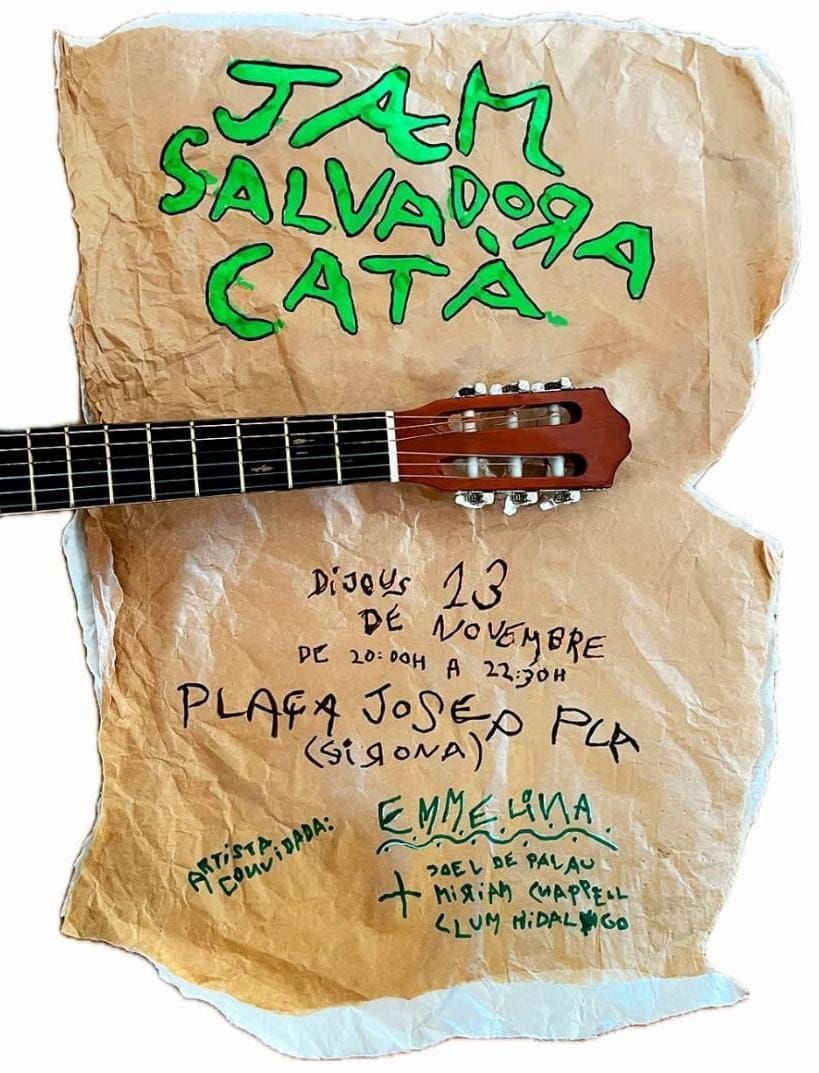 JAM
SALVADORA
CATÀ
DiJOUS 13
DE NOVEMBRE
DE 20:00H A 22:30H
PLAÇA JOSEP PLA
(GiRONA)
ARTiSTA
CONViDADA:
EMMELiNA
+ JOEL DE PALAU
MiRiAM CHAPPELL
LLUM HiDALGO